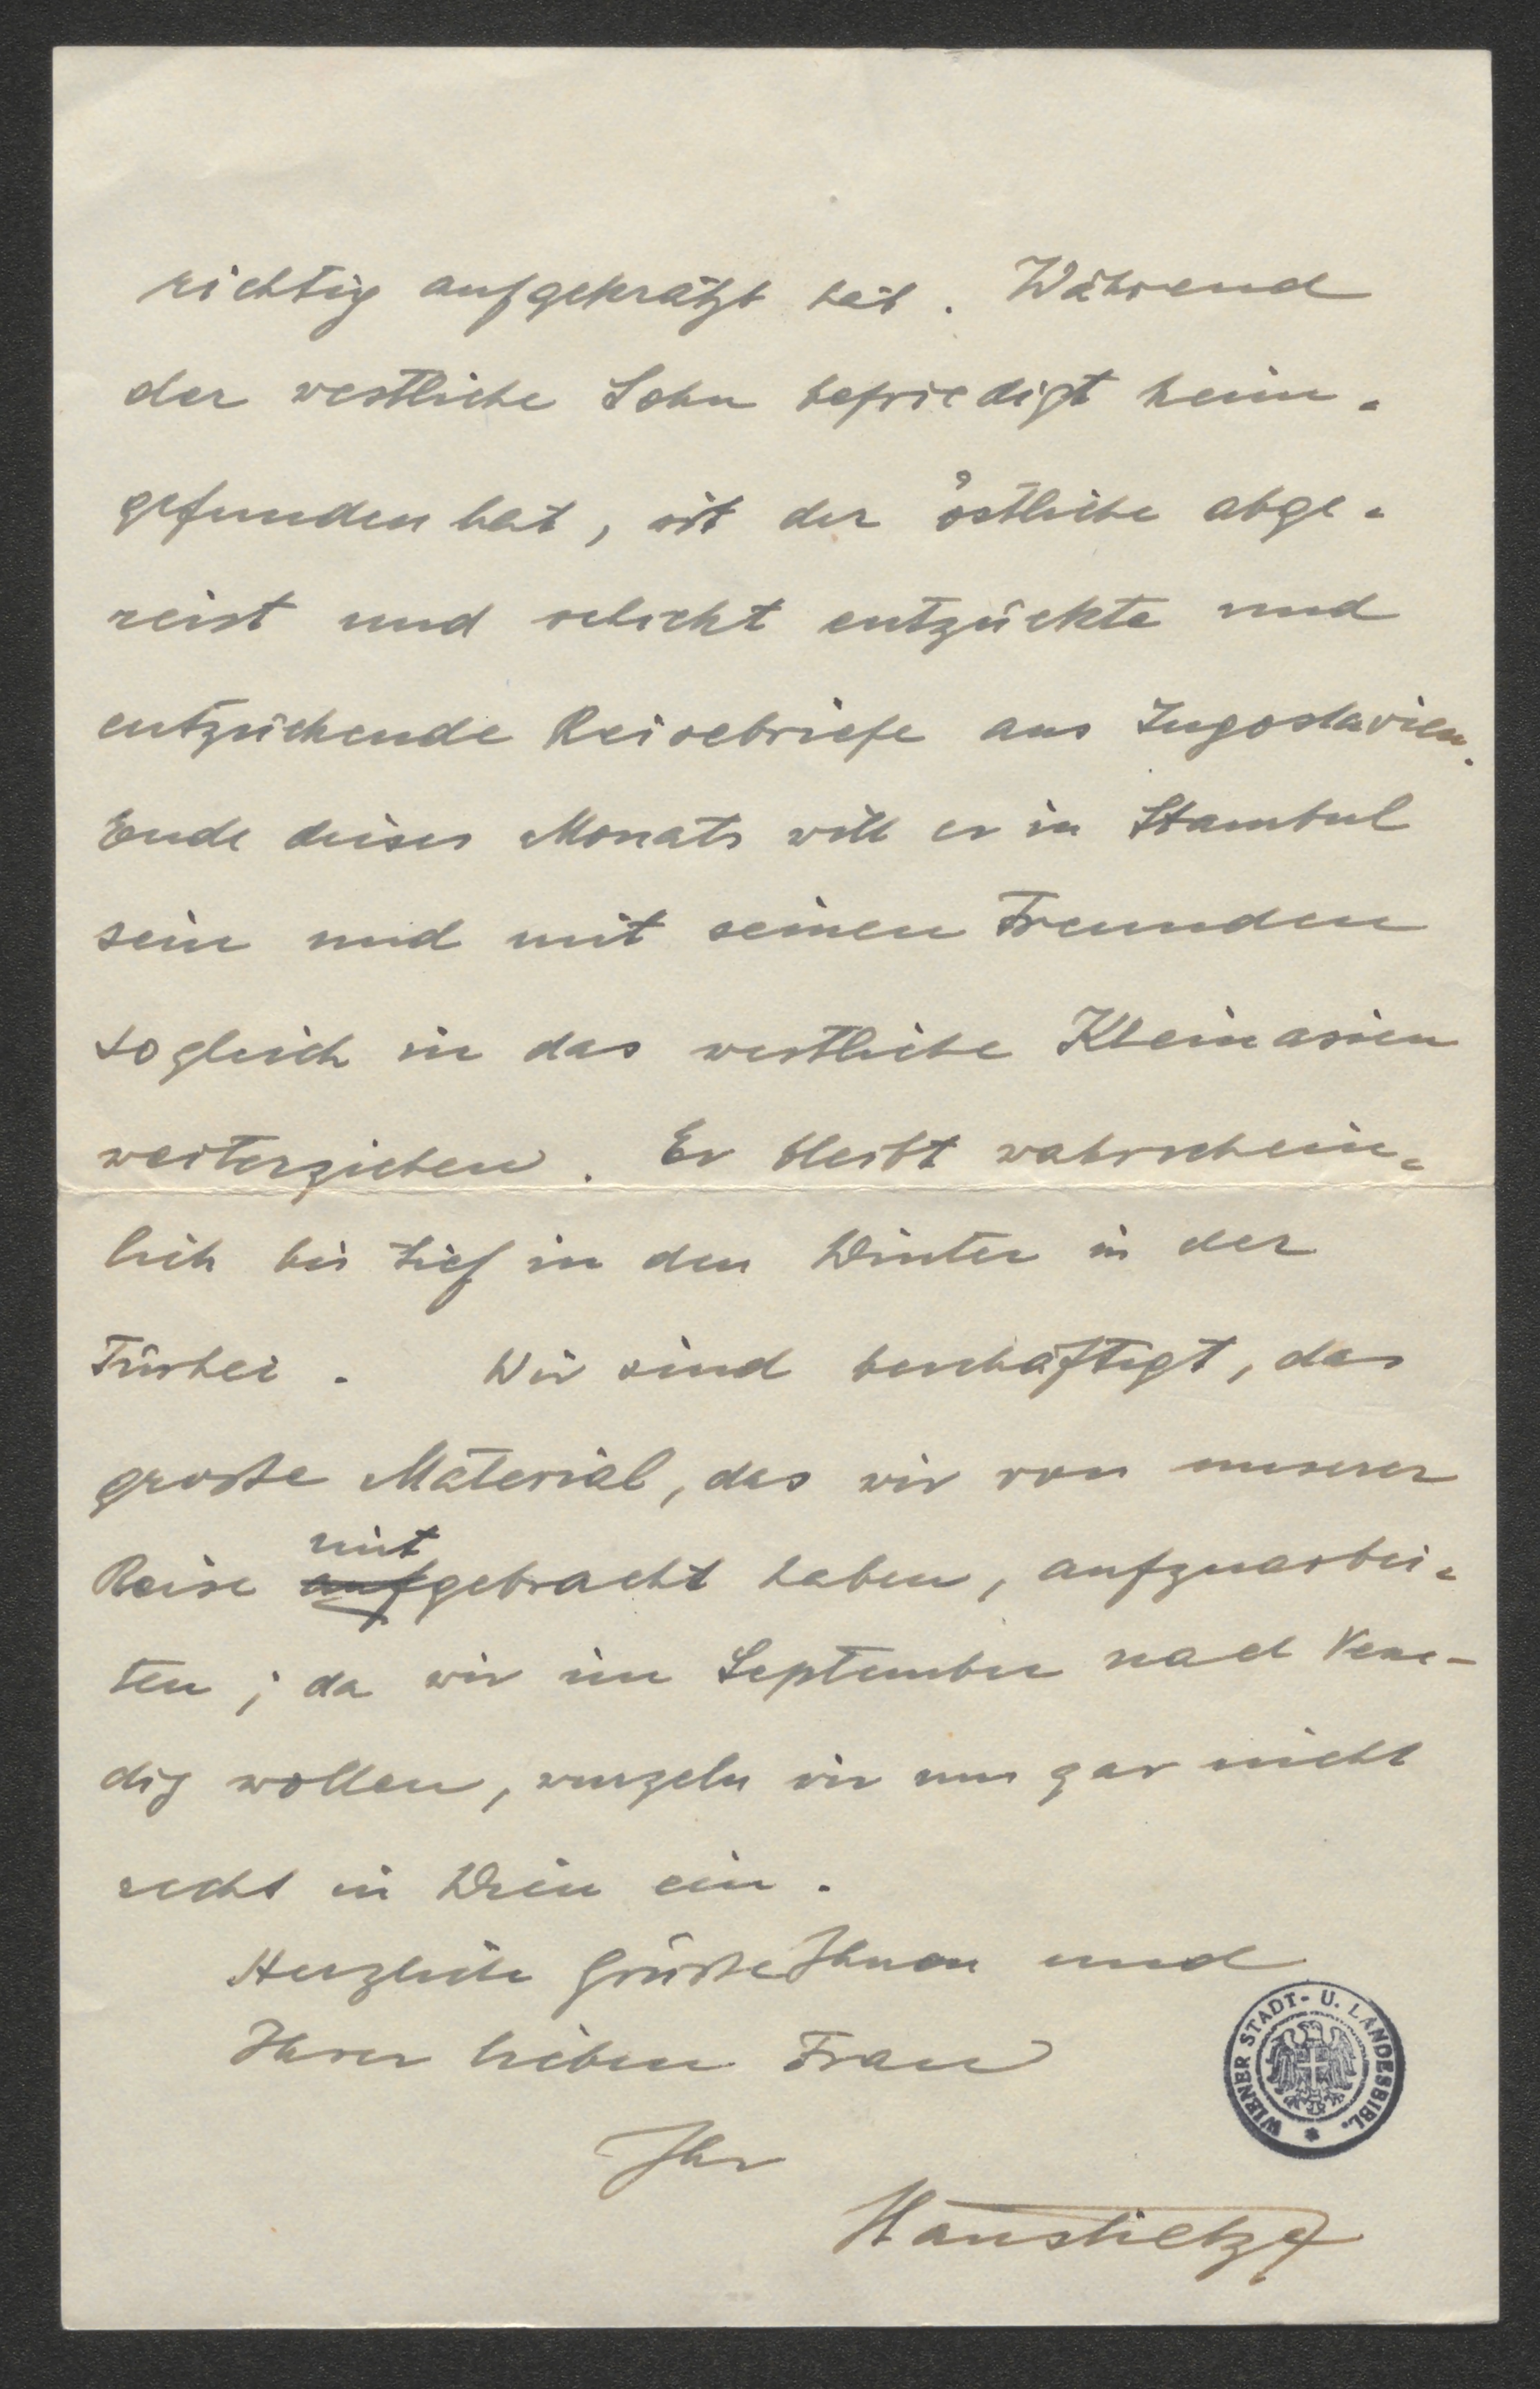 richtig aufgekratzt hat. Während
der westliche Sohn befriedigt heim-
gefunden hat, ist der östliche abge-
reist und schickt entzückte und
entzückende Reisebriefe aus Jugoslavien.
Ende dieses Monats will er in Stambul
sein und mit seinen Freunden
sogleich in das westliche Kleinasien
weiterziehen. Er bleibt wahrschein-
lich bis tief in den Winter in der
Türkei. Wir sind beschäftigt, das
große Material, das wir von unserer
mit
Reise aufgebracht haben, aufzuarbei-
ten; da wir im September nach Vene-
dig wollen, wurzeln wir nun gar nicht
recht in Wien ein.
Herzliche Grüße Ihnen und
Ihrer lieben Frau
Ihr
Hans Tietze
WIENER STADT- U. LANDESBIBL.